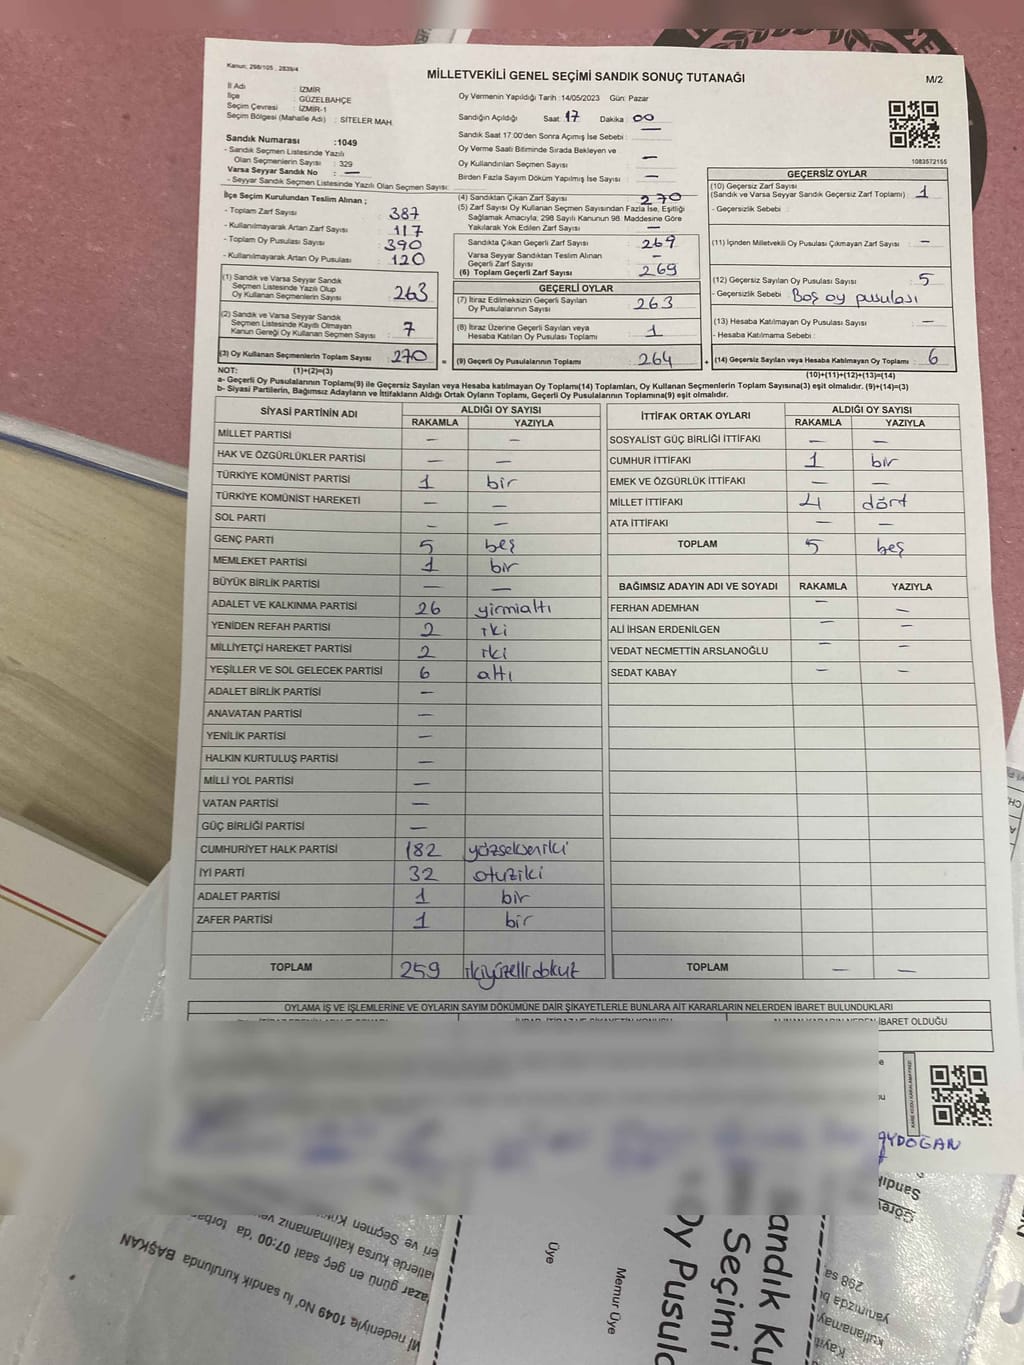 Kanun: 298/105 , 2839/4
MİLLETVEKİLİ GENEL SEÇİMİ SANDIK SONUÇ TUTANAĞI
M/2
İl Adı : İZMİR
İlçe : GÜZELBAHÇE
Seçim Çevresi : İZMİR-1
Seçim Bölgesi (Mahalle Adı) : SİTELER MAH.
Sandık Numarası :1049
- Sandık Seçmen Listesinde Yazılı
Olan Seçmenlerin Sayısı : 329
Varsa Seyyar Sandık No : —
- Seyyar Sandık Seçmen Listesinde Yazılı Olan Seçmen Sayısı:
Oy Vermenin Yapıldığı Tarih :14/05/2023 Gün: Pazar
Sandığın Açıldığı Saat 17 Dakika 00
Sandık Saat 17:00'den Sonra Açımış İse Sebebi : —
Oy Verme Saati Bitiminde Sırada Bekleyen ve
Oy Kullandırılan Seçmen Sayısı : —
Birden Fazla Sayım Döküm Yapılmış İse Sayısı : —
1083572155
İlçe Seçim Kurulundan Teslim Alınan ;
- Toplam Zarf Sayısı : 387
- Kullanılmayarak Artan Zarf Sayısı : 117
- Toplam Oy Pusulası Sayısı : 390
- Kullanılmayarak Artan Oy Pusulası : 120
(1) Sandık ve Varsa Seyyar Sandık
Seçmen Listesinde Yazılı Olup
Oy Kullanan Seçmenlerin Sayısı : 263
(2) Sandık ve Varsa Seyyar Sandık
Seçmen Listesinde Kayıtlı Olmayan
Kanun Gereği Oy Kullanan Seçmen Sayısı : 7
(3) Oy Kullanan Seçmenlerin Toplam Sayısı : 270
(1)+(2)=(3)
(4) Sandıktan Çıkan Zarf Sayısı : 270
(5) Zarf Sayısı Oy Kullanan Seçmen Sayısından Fazla İse, Eşitliği
Sağlamak Amacıyla, 298 Sayılı Kanunun 98. Maddesine Göre
Yakılarak Yok Edilen Zarf Sayısı : —
Sandıkta Çıkan Geçerli Zarf Sayısı : 269
Varsa Seyyar Sandıktan Teslim Alınan
Geçerli Zarf Sayısı : —
(6) Toplam Geçerli Zarf Sayısı : 269
GEÇERLİ OYLAR
(7) İtiraz Edilmeksizin Geçerli Sayılan
Oy Pusulalarının Sayısı : 263
(8) İtiraz Üzerine Geçerli Sayılan veya
Hesaba Katılan Oy Pusulası Toplamı : 1
= (9) Geçerli Oy Pusulalarının Toplamı : 264
GEÇERSİZ OYLAR
(10) Geçersiz Zarf Sayısı
(Sandık ve Varsa Seyyar Sandık Geçersiz Zarf Toplamı) : 1
- Geçersizlik Sebebi :
(11) İçinden Milletvekili Oy Pusulası Çıkmayan Zarf Sayısı : —
(12) Geçersiz Sayılan Oy Pusulası Sayısı : 5
- Geçersizlik Sebebi : Boş oy pusulası
(13) Hesaba Katılmayan Oy Pusulası Sayısı : —
- Hesaba Katılmama Sebebi :
+ (14) Geçersiz Sayılan veya Hesaba Katılmayan Oy Toplamı : 6
(10)+(11)+(12)+(13)=(14)
NOT:
a- Geçerli Oy Pusulalarının Toplamı(9) ile Geçersiz Sayılan veya Hesaba katılmayan Oy Toplamı(14) Toplamları, Oy Kullanan Seçmenlerin Toplam Sayısına(3) eşit olmalıdır. (9)+(14)=(3)
b- Siyasi Partilerin, Bağımsız Adayların ve İttifakların Aldığı Ortak Oyların Toplamı, Geçerli Oy Pusulalarının Toplamına(9) eşit olmalıdır.
SİYASİ PARTİNİN ADI ALDIĞI OY SAYISI
RAKAMLA YAZIYLA
MİLLET PARTİSİ — —
HAK VE ÖZGÜRLÜKLER PARTİSİ — —
TÜRKİYE KOMÜNİST PARTİSİ 1 bir
TÜRKİYE KOMÜNİST HAREKETİ — —
SOL PARTİ — —
GENÇ PARTİ 5 beş
MEMLEKET PARTİSİ 1 bir
BÜYÜK BİRLİK PARTİSİ — —
ADALET VE KALKINMA PARTİSİ 26 yirmialtı
YENİDEN REFAH PARTİSİ 2 iki
MİLLİYETÇİ HAREKET PARTİSİ 2 iki
YEŞİLLER VE SOL GELECEK PARTİSİ 6 altı
ADALET BİRLİK PARTİSİ —
ANAVATAN PARTİSİ —
YENİLİK PARTİSİ —
HALKIN KURTULUŞ PARTİSİ —
MİLLİ YOL PARTİSİ —
VATAN PARTİSİ —
GÜÇ BİRLİĞİ PARTİSİ —
CUMHURİYET HALK PARTİSİ 182 yüzsekseniki
İYİ PARTİ 32 otuziki
ADALET PARTİSİ 1 bir
ZAFER PARTİSİ 1 bir
TOPLAM 259 ikiyüzellidokuz
İTTİFAK ORTAK OYLARI ALDIĞI OY SAYISI
RAKAMLA YAZIYLA
SOSYALİST GÜÇ BİRLİĞİ İTTİFAKI — —
CUMHUR İTTİFAKI 1 bir
EMEK VE ÖZGÜRLÜK İTTİFAKI — —
MİLLET İTTİFAKI 4 dört
ATA İTTİFAKI — —
TOPLAM 5 beş
BAĞIMSIZ ADAYIN ADI VE SOYADI RAKAMLA YAZIYLA
FERHAN ADEMHAN — —
ALİ İHSAN ERDENİLGEN — —
VEDAT NECMETTİN ARSLANOĞLU — —
SEDAT KABAY — —
TOPLAM — —
OYLAMA İŞ VE İŞLEMLERİNE VE OYLARIN SAYIM DÖKÜMÜNE DAİR ŞİKAYETLERLE BUNLARA AİT KARARLARIN NELERDEN İBARET BULUNDUKLARI
İBARET OLDUĞU
AYDOĞAN
Mİ nedeniyle 1049 No'lu sandık kurulunda BAŞKAN
azar günü en geç saat 07:00 'da
Üye
Memur Üye
andık Ku
Seçimi
Oy Pusula
298 sa